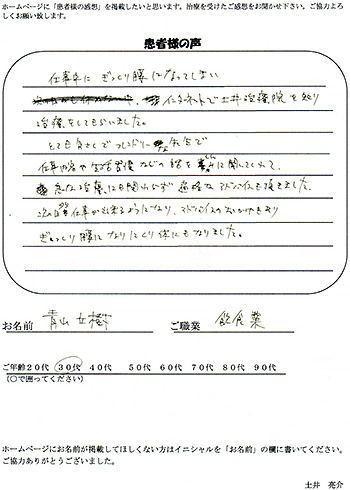 ホームページに「患者様の感想」を掲載したいと思います。治療を受けたご感想をお聞かせ下さい。ご協力よろ
しくお願い致します。
患者様の声
仕事中に ぎっくり腰になってしまい
インターネットで土井治療院を知り
治療をしてもらいました。
とても気さくでフレンドリーな先生で
仕事内容や生活習慣などの話を親身に聞いてくれて、
急な治療にも関わらず 適格なアドバイスも頂きました。
次の日 仕事が出来るようになり、アドバイスのおかげもあり
ぎっくり腰になりにくい体にもなりました。
お名前 青山
ご職業 飲食業
ご年齢 20代 30代 40代 50代 60代 70代 80代 90代
(〇で囲ってください)
ホームページにお名前が掲載してほしくない方はイニシャルを「お名前」の欄に書いてください。
ご協力ありがとうございました。
土井 亮介